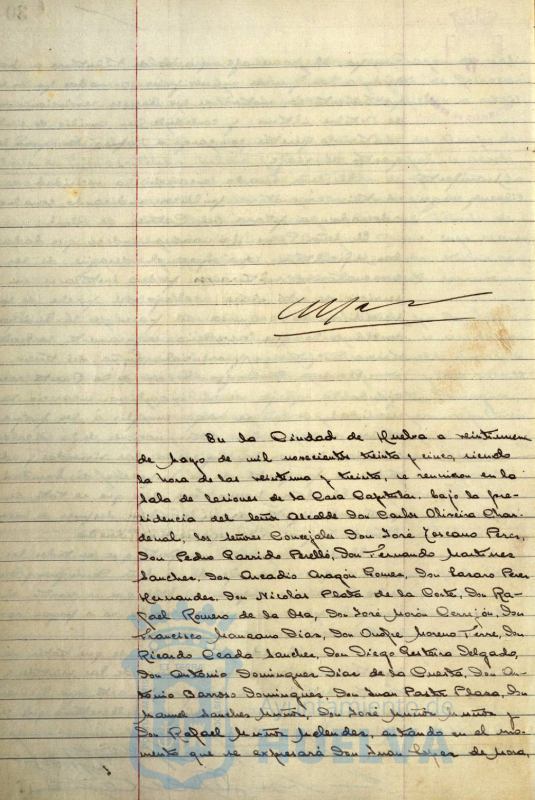 En la Ciudad de Huelva a veintinueve
de Mayo de mil novecientos treinta y cinco, siendo
la hora de las veintiuna y treinta, se reunieron en la
Sala de Sesiones de la Casa Capitular, bajo la pre-
sidencia del Señor Alcalde Don Carlos Oliveira Char-
denal, los señores Concejales Don José Toscano Perez,
Don Pedro Garrido Perelló, Don Fernando Martinez
Sanchez, Don Arcadio Aragón Gomez, Don Lazaro Perez
Hernandez, Don Nicolás Plata de la Corte, Don Ra-
fael Romero de la Osa, Don José Morón Cerrejón, Don
Francisco Manzano Dias, Don Onofre Moreno Terre, Don
Ricardo Ceada Sanchez, Don Diego Delgado,
Don Antonio Dominguez Diaz de la Cuesta, Don An-
tonio Barroso Dominguez, Don Juan Plaza, Don
Manuel Sanchez Muñoz, Don José Muñoz Muñoz y
Don Rafael Muñoz Melendez, entrando en el mo-
mento que se expresará Don Juan Lopez de Mora,
Ayuntamiento de